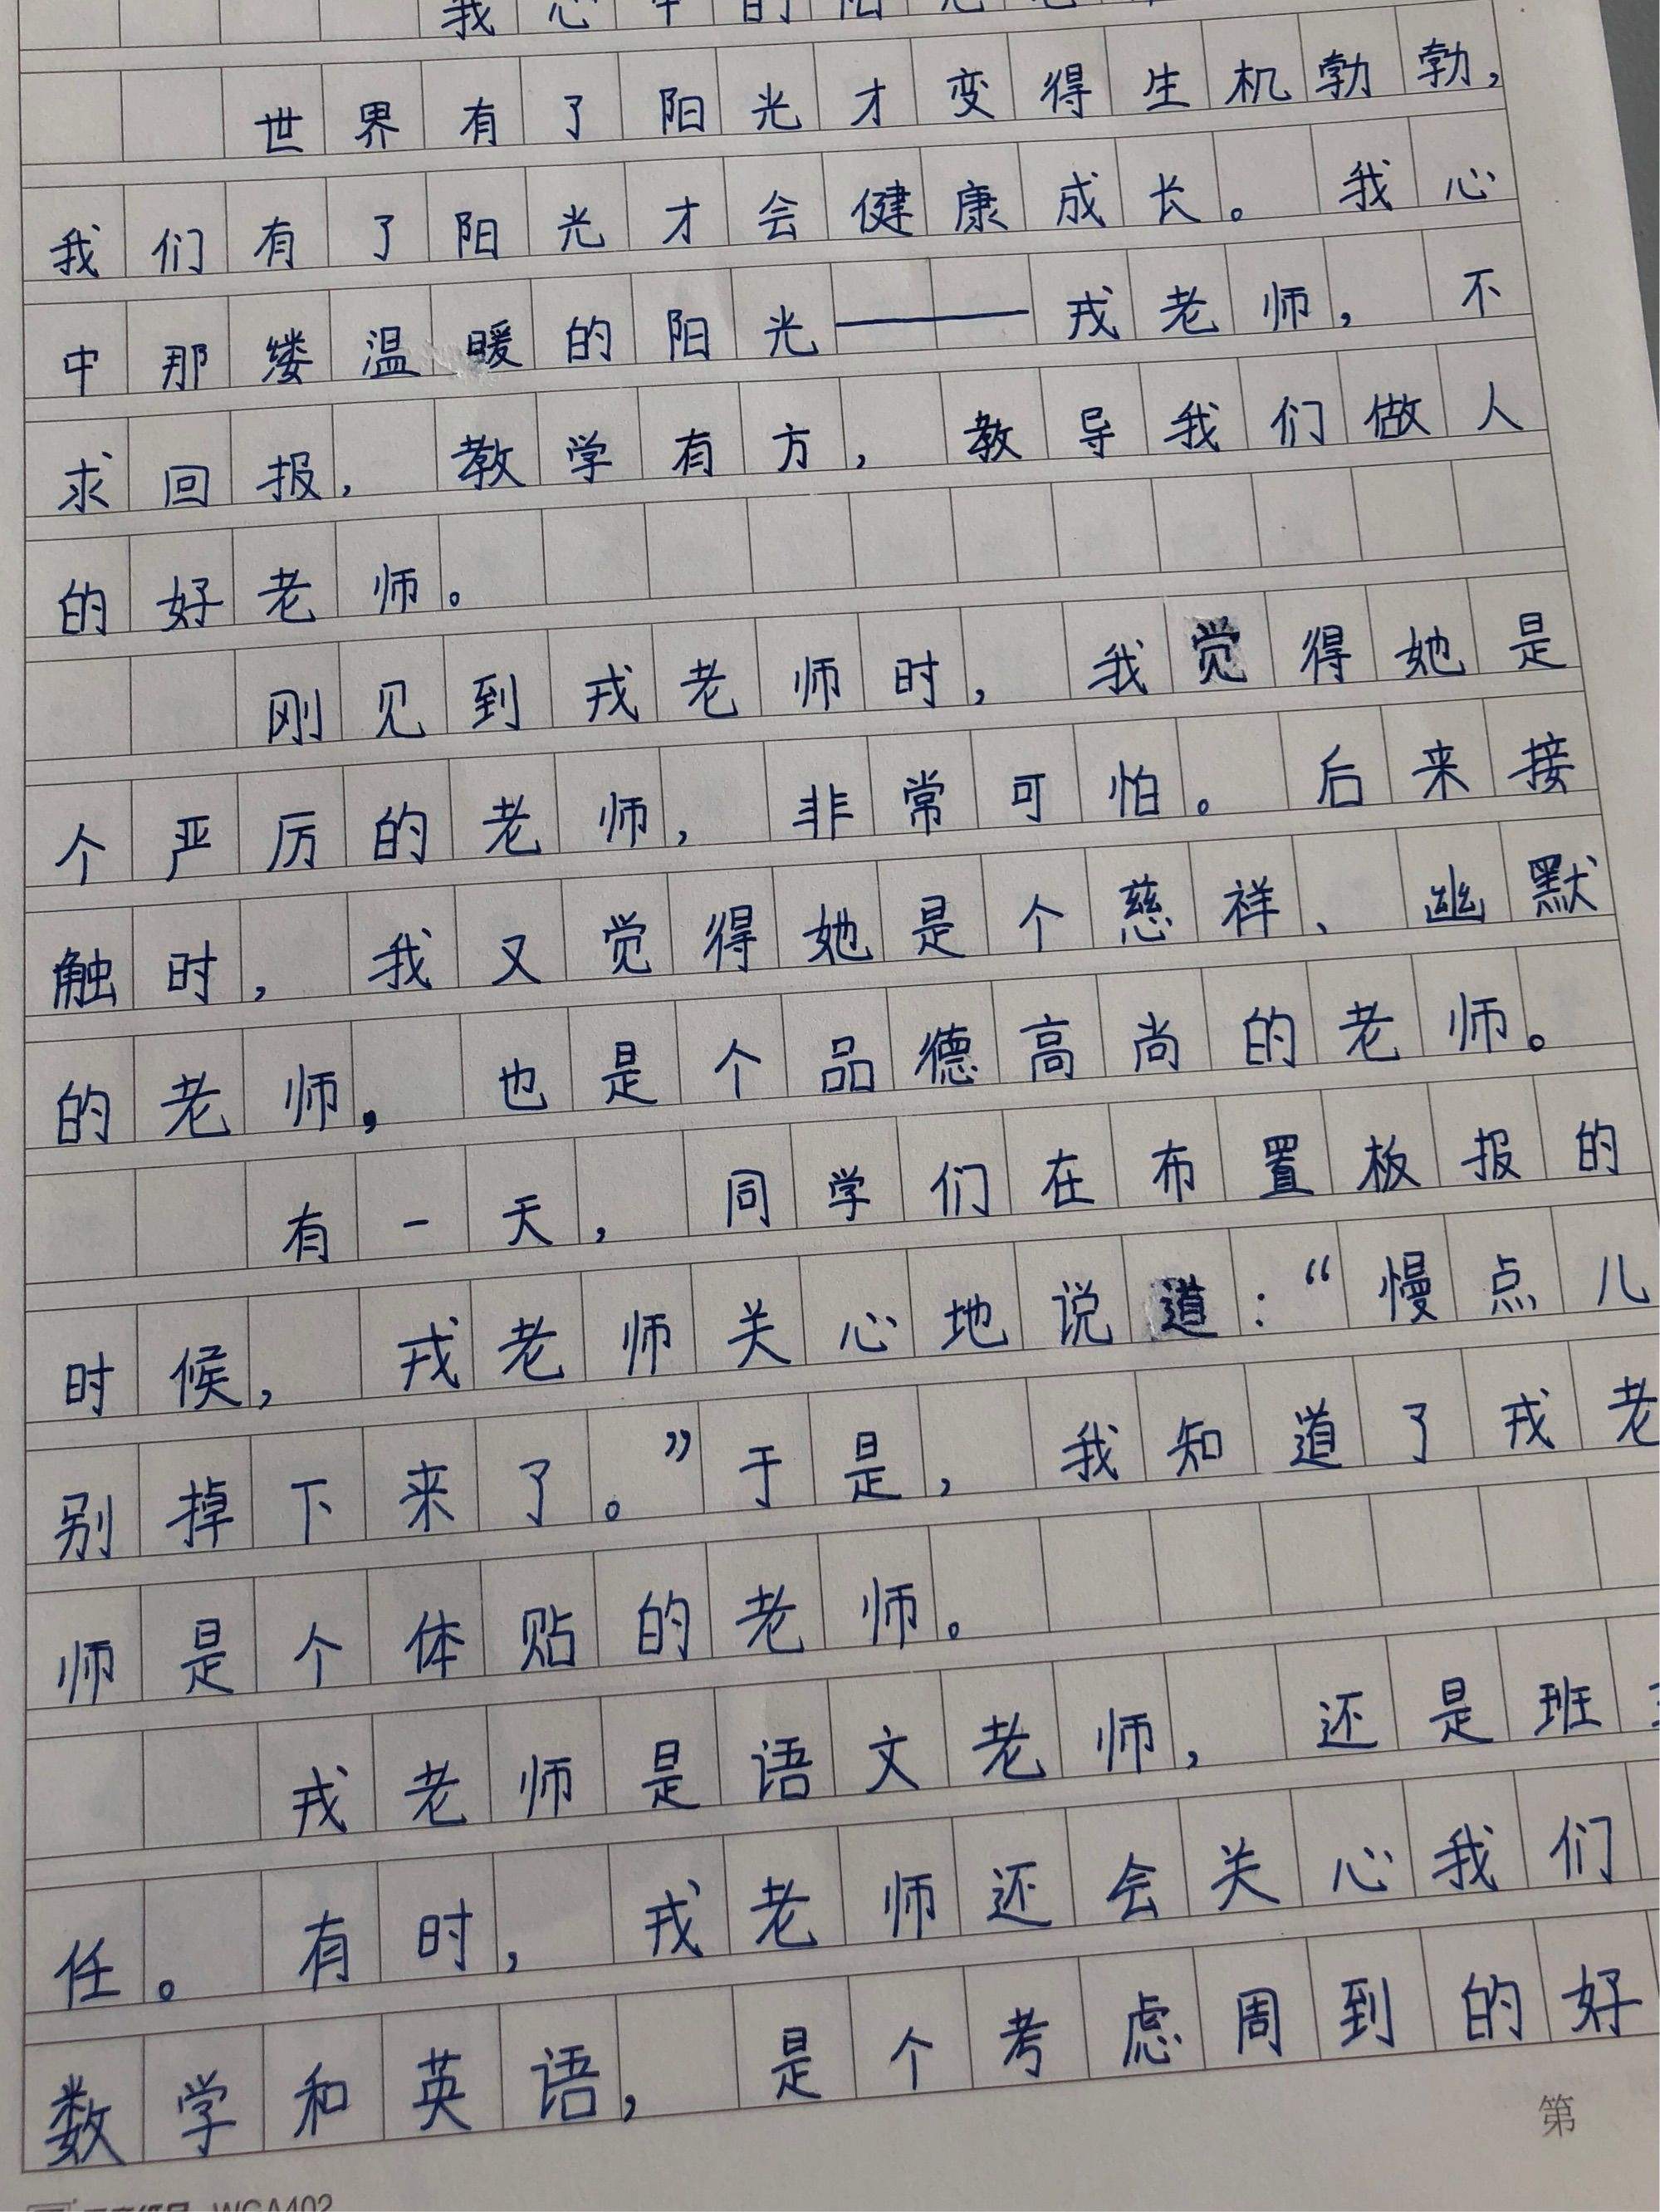 我心中的阳光老师
世界有了阳光才变得生机勃勃，
我们有了阳光才会健康成长。我心
中那缕温暖的阳光——戎老师，不
求回报，教学有方，教导我们做人
的好老师。
刚见到戎老师时，我觉得她是
个严厉的老师，非常可怕。后来接
触时，我又觉得她是个慈祥、幽默
的老师，也是个品德高尚的老师。
有一天，同学们在布置板报的
时候，戎老师关心地说道：“慢点儿
别掉下来了。”于是，我知道了戎老
师是个体贴的老师。
戎老师是语文老师，还是班
任。有时，戎老师还会关心我们
数学和英语，是个考虑周到的好
第
WGA402